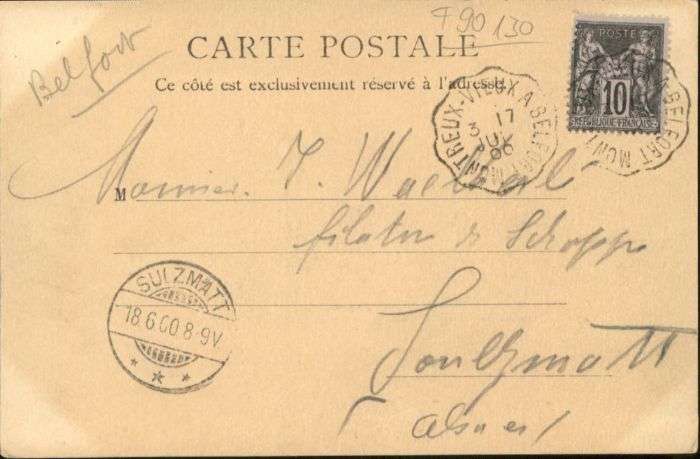 Belfort
F90 130
CARTE POSTALE
Ce côté est exclusivement réservé à l'adresse.
POSTES
10
REPUBLIQUE FRANÇAISE
MONTREUX-VIEUX A BELFORT
3 17
JUIN
00
BELFORT MONT
M Monsieur J.
filature de Schoppe
Soultzmatt
(Alsace)
SULZMATT
18.6.00.8-9V.